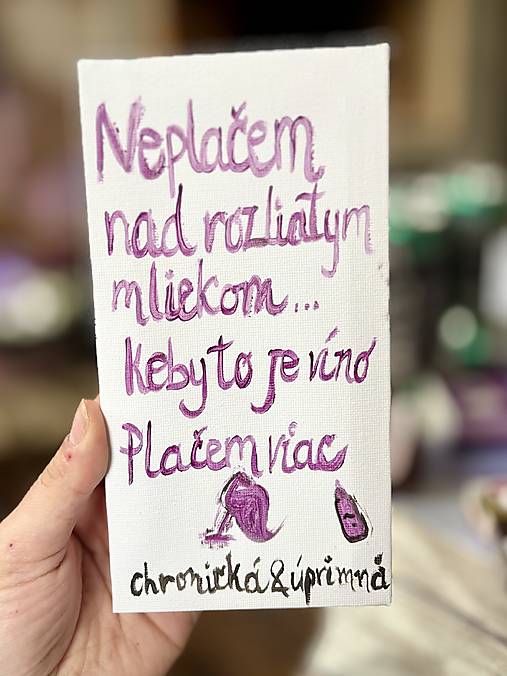 Neplačem
nad rozliatym
mliekom...
Keby to je víno
Plačem viac
chronická&úprimná